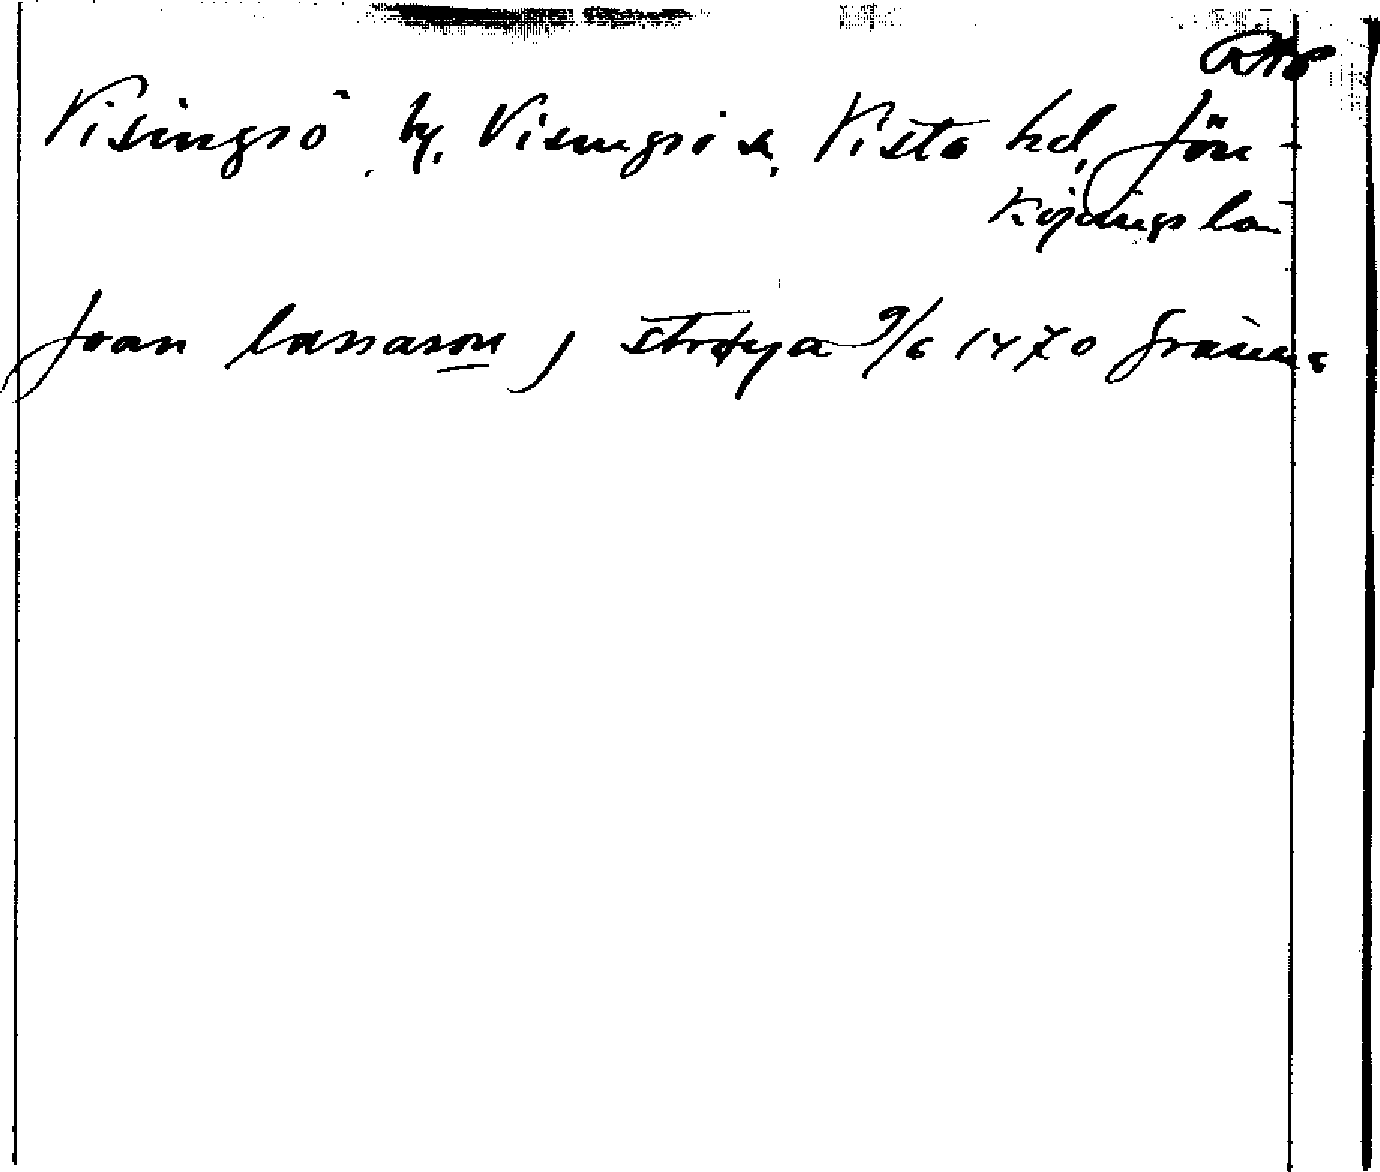 Visingsö by, Visingsö sn, Vista hd, Jön-
köpings län
Joan lassason j strøya 9/6 1470 Gränna